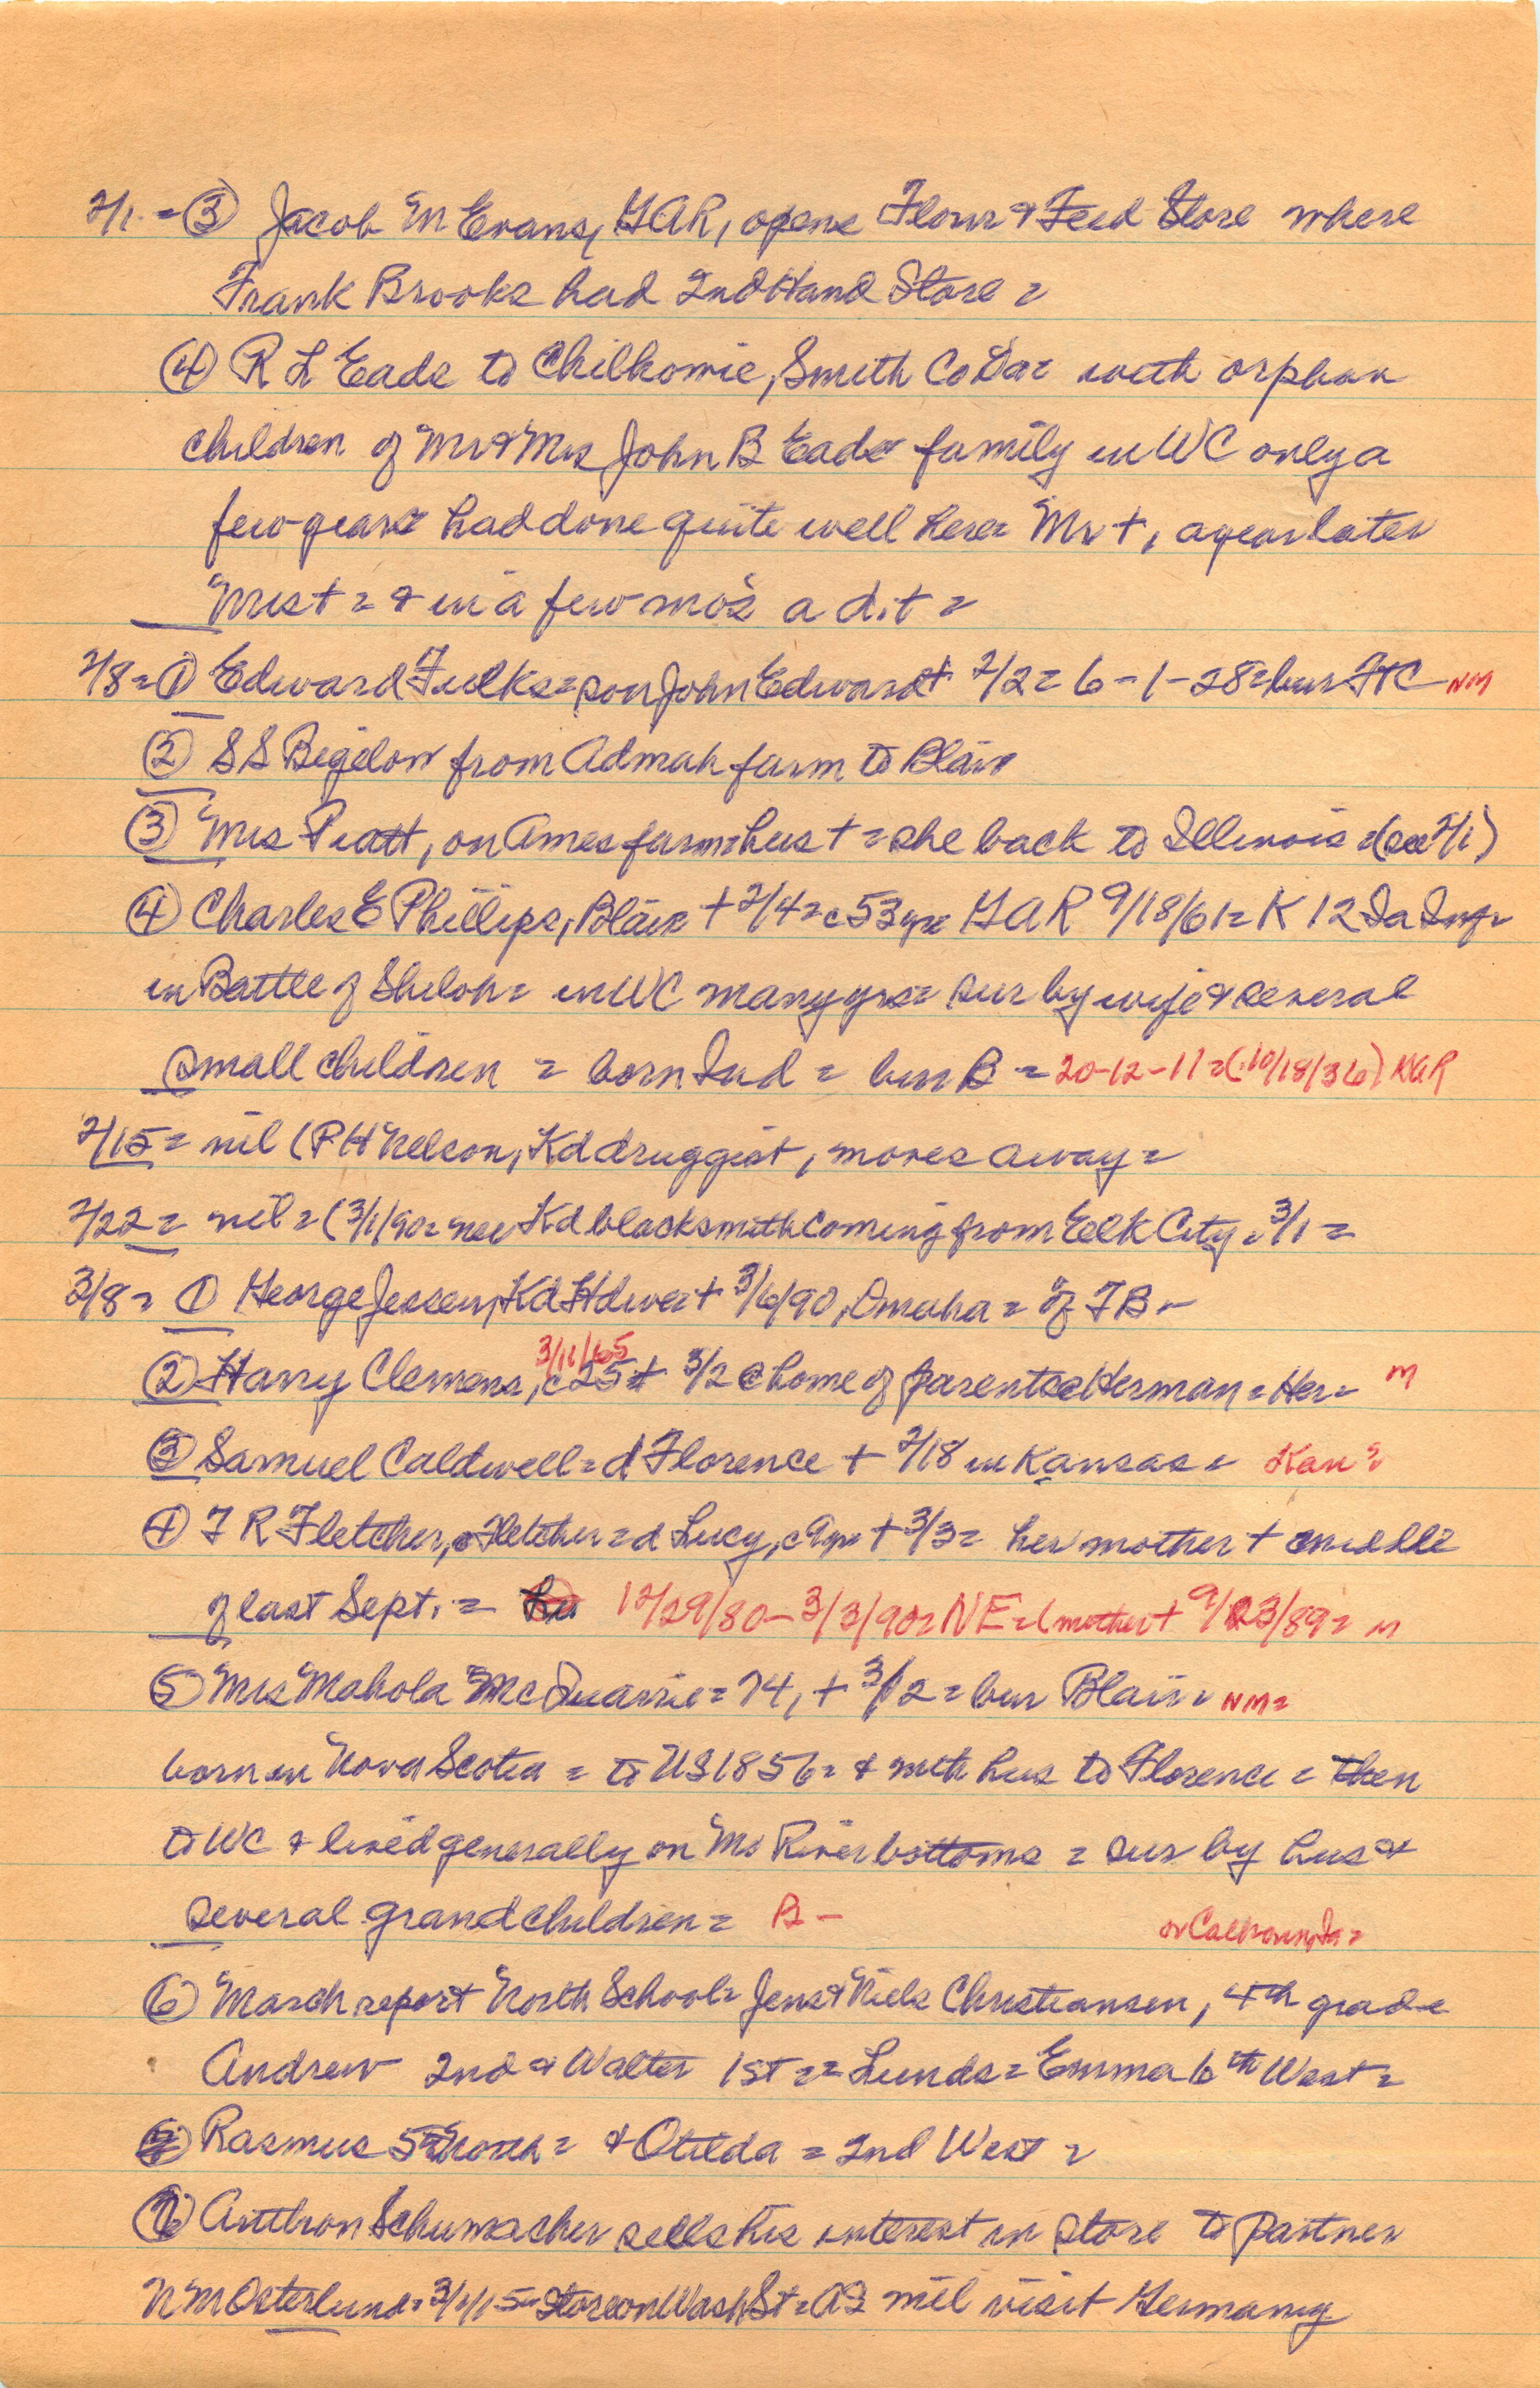 2/1 = ③ Jacob M Evans, GAR, opens Flour & Feed Store where
Frank Brooks had 2nd Hand Store =
④ R L Eads to Chilhowie, Smith Co Va = with orphan
children of Mr & Mrs John B Eads family in WC only a
few years = had done quite well here = Mr +, a year later
Mrs + = & in a few mo's a d. + =
2/8 = ① Edward Fulks = son John Edward + 2/2 = 6 - 1 - 28 = bur FtC - NM
② S S Bigelow from Admah farm to Blair
③ Mrs Pratt, on Ames farm = hus + = she back to Illinois = (see 2/1)
④ Charles E Phillips, Blair + 2/4 = c 53 yrs GAR 9/18/61 = K 12 Ia Inf =
in Battle of Shiloh = in WC many yrs = sur by wife & several
small children = born Ind = bur B = 20-12-11 = (10/18/36) GAR
2/15 = nil (P H Nelson, Kd druggist, moves away =
2/22 = nil = (3/1/90 = new Kd blacksmith coming from Elk City. 3/1 =
3/8 = ① George Jessen, Kd Hdwe + 3/6/90, Omaha = of TB -
3/11/65
② Harry Clemens, c 25 + 3/2 @ home of parents @ Herman = Her = M
③ Samuel Caldwell = d Florence + 2/18 in Kansas = Kan =
④ T R Fletcher, @ Fletcher = d Lucy, c 9 yrs + 3/3 = her mother + middle
of last Sept. = 12/29/80 - 3/3/90 = NE = (mother + 9/23/89 = M
⑤ Mrs Mahola McQuarrie = 74, + 3/2 = bur Blair = NM =
born in Nova Scotia = to US 1856 = & with hus to Florence = then
to WC & lived generally on Mo River bottoms = sur by hus &
several grandchildren = B -
or Calhoun, Ia =
⑥ March report North School = Jens & Niels Christiansen, 4th grade
Andrew 2nd & Walter 1st = = Lunds = Emma 6th West =
Rasmus 5th North = & Otilda = 2nd West =
⑦ Anthon Schumacher sells his interest in store to partner
N M Osterlund = 3/1/15 = Store on Wash St = AS will visit Germany